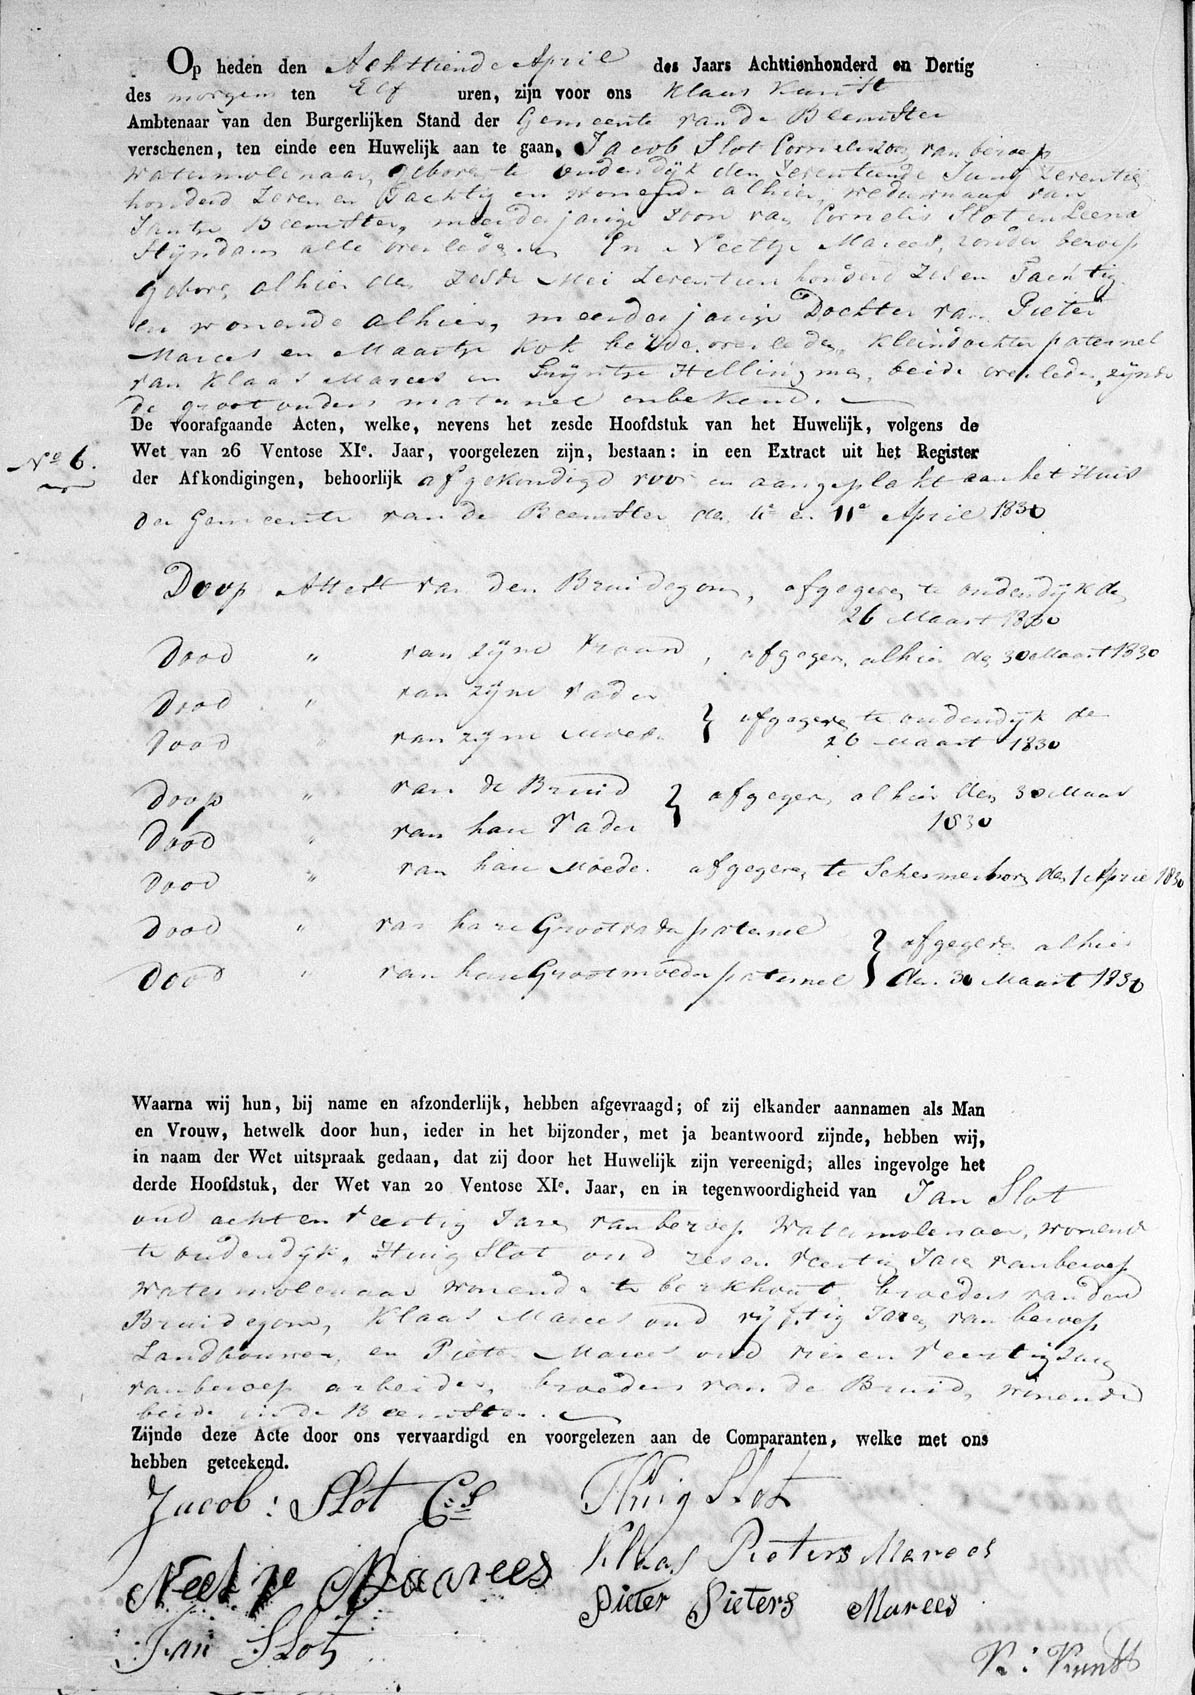 Op heden den Achttiende April des Jaars Achttienhonderd en Dertig
des morgens ten Elf uren, zijn voor ons Klaas Kunst
Ambtenaar van den Burgerlijken Stand der Gemeente van de Beemster
verschenen, ten einde een Huwelijk aan te gaan, Jacob Slot Corneliszoon, van beroep
watermolenaar, geboren te oudendijk den Zeventiende Juny Zeventien
honderd Zeven en Tachtig en wonende alhier, weduwnaar van
Jantje Beemster, meerderjarige Zoon van Cornelis Slot en Leena
Stijndam alle overleden. En Neeltje Marees, zonder beroep
geboren alhier den zesde Mei Zeventien honderd Zes en Tachtig
en wonende alhier, meerderjarige Dochter van Pieter
Marees en Maartje Kok beide overleden, kleindochter paternel
van Klaas Marees en Trijntje Hellingman, beide overleden, zijnde
de grootouders maternel onbekend.
De voorafgaande Acten, welke, nevens het zesde Hoofdstuk van het Huwelijk, volgens de
Wet van 26 Ventose XIe. Jaar, voorgelezen zijn, bestaan: in een Extract uit het Register
No 6.
der Afkondigingen, behoorlijk afgekondigd voor en aangeplakt aan het Huis
der Gemeente van de Beemster den 4e en 11e April 1830
Doop Attest van den Bruidegom, afgegeven te oudendijk den
26 Maart 1830
Dood " van zijne Vrouw, afgegeven alhier den 30 Maart 1830
Dood " van zijne Vader
Dood " van zijne Moeder } afgegeven te oudendijk de
26 Maart 1830
Doop " van de Bruid } afgegeven alhier den 30 Maart
Dood " van hare Vader 1830
Dood " van hare Moeder afgegeven te Schermerhorn den 1 April 1830
Dood " van hare Grootvader paternel } afgegeven alhier
Dood " van hare Grootmoeder paternel den 30 Maart 1830
Waarna wij hun, bij name en afzonderlijk, hebben afgevraagd; of zij elkander aannamen als Man
en Vrouw, hetwelk door hun, ieder in het bijzonder, met ja beantwoord zijnde, hebben wij,
in naam der Wet uitspraak gedaan, dat zij door het Huwelijk zijn vereenigd; alles ingevolge het
derde Hoofdstuk, der Wet van 20 Ventose XIe. Jaar, en in tegenwoordigheid van Jan Slot
oud acht en Veertig Jaren van beroep Watermolenaar, wonende
te oudendijk, Huig Slot oud zes en Veertig Jaren van beroep
watermolenaar wonende te berkhout, broeders van den
Bruidegom, Klaas Marees oud vijftig Jaren van beroep
Landbouwer, en Pieter Marees oud vier en Veertig Jaren
van beroep arbeider, broeders van de Bruid, wonende
beide in de Beemster.
Zijnde deze Acte door ons vervaardigd en voorgelezen aan de Comparanten, welke met ons
hebben geteekend.
Jacob: Slot Cs
Huig Slot
Neeltje Maarees
Klaas Pieters Marees
Pieter Pieters Marees
Jan Slot
K: Kunst